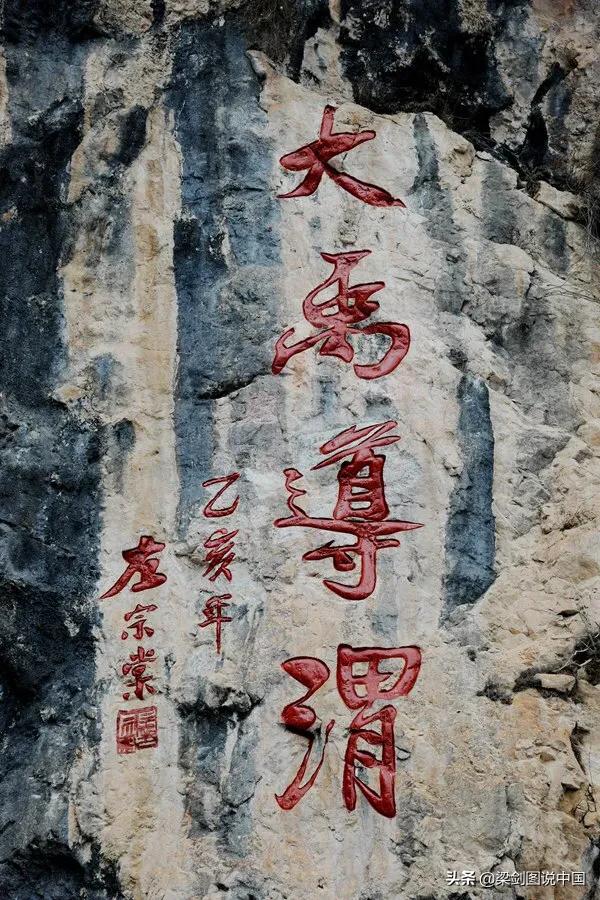 大禹導渭
乙亥年
左宗棠
头条 @梁剑图说中国